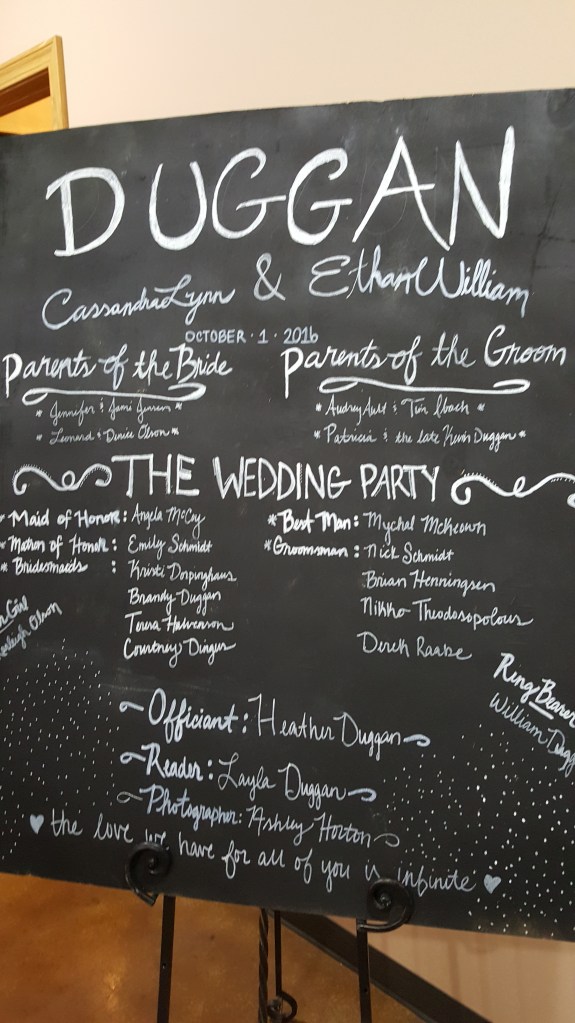 DUGGAN
Cassandra Lynn & Ethan William
OCTOBER · 1 · 2016
Parents of the Bride
* Jennifer & Jami Jensen *
* Leonard & Denice Olson *
Parents of the Groom
* Audrey Ault & Tim Ibach *
* Patricia & the late Kevin Duggan *
THE WEDDING PARTY
* Maid of Honor: Angela McCoy
* Matron of Honor: Emily Schmidt
* Bridesmaids : Kristi Dorpinghaus
Brandy Duggan
Teresa Halverson
Courtney Dinger
* Best Man: Mychal McKeown
* Groomsman: Nick Schmidt
Brian Henningsen
Nikko Theodosopolous
Derek Raabe
Girl
Olson
Ring Bearer
William Dugg
~Officiant: Heather Duggan~
~Reader: Layla Duggan~
~Photographer: Ashley Horton~
♥ the love we have for all of you is infinite ♥